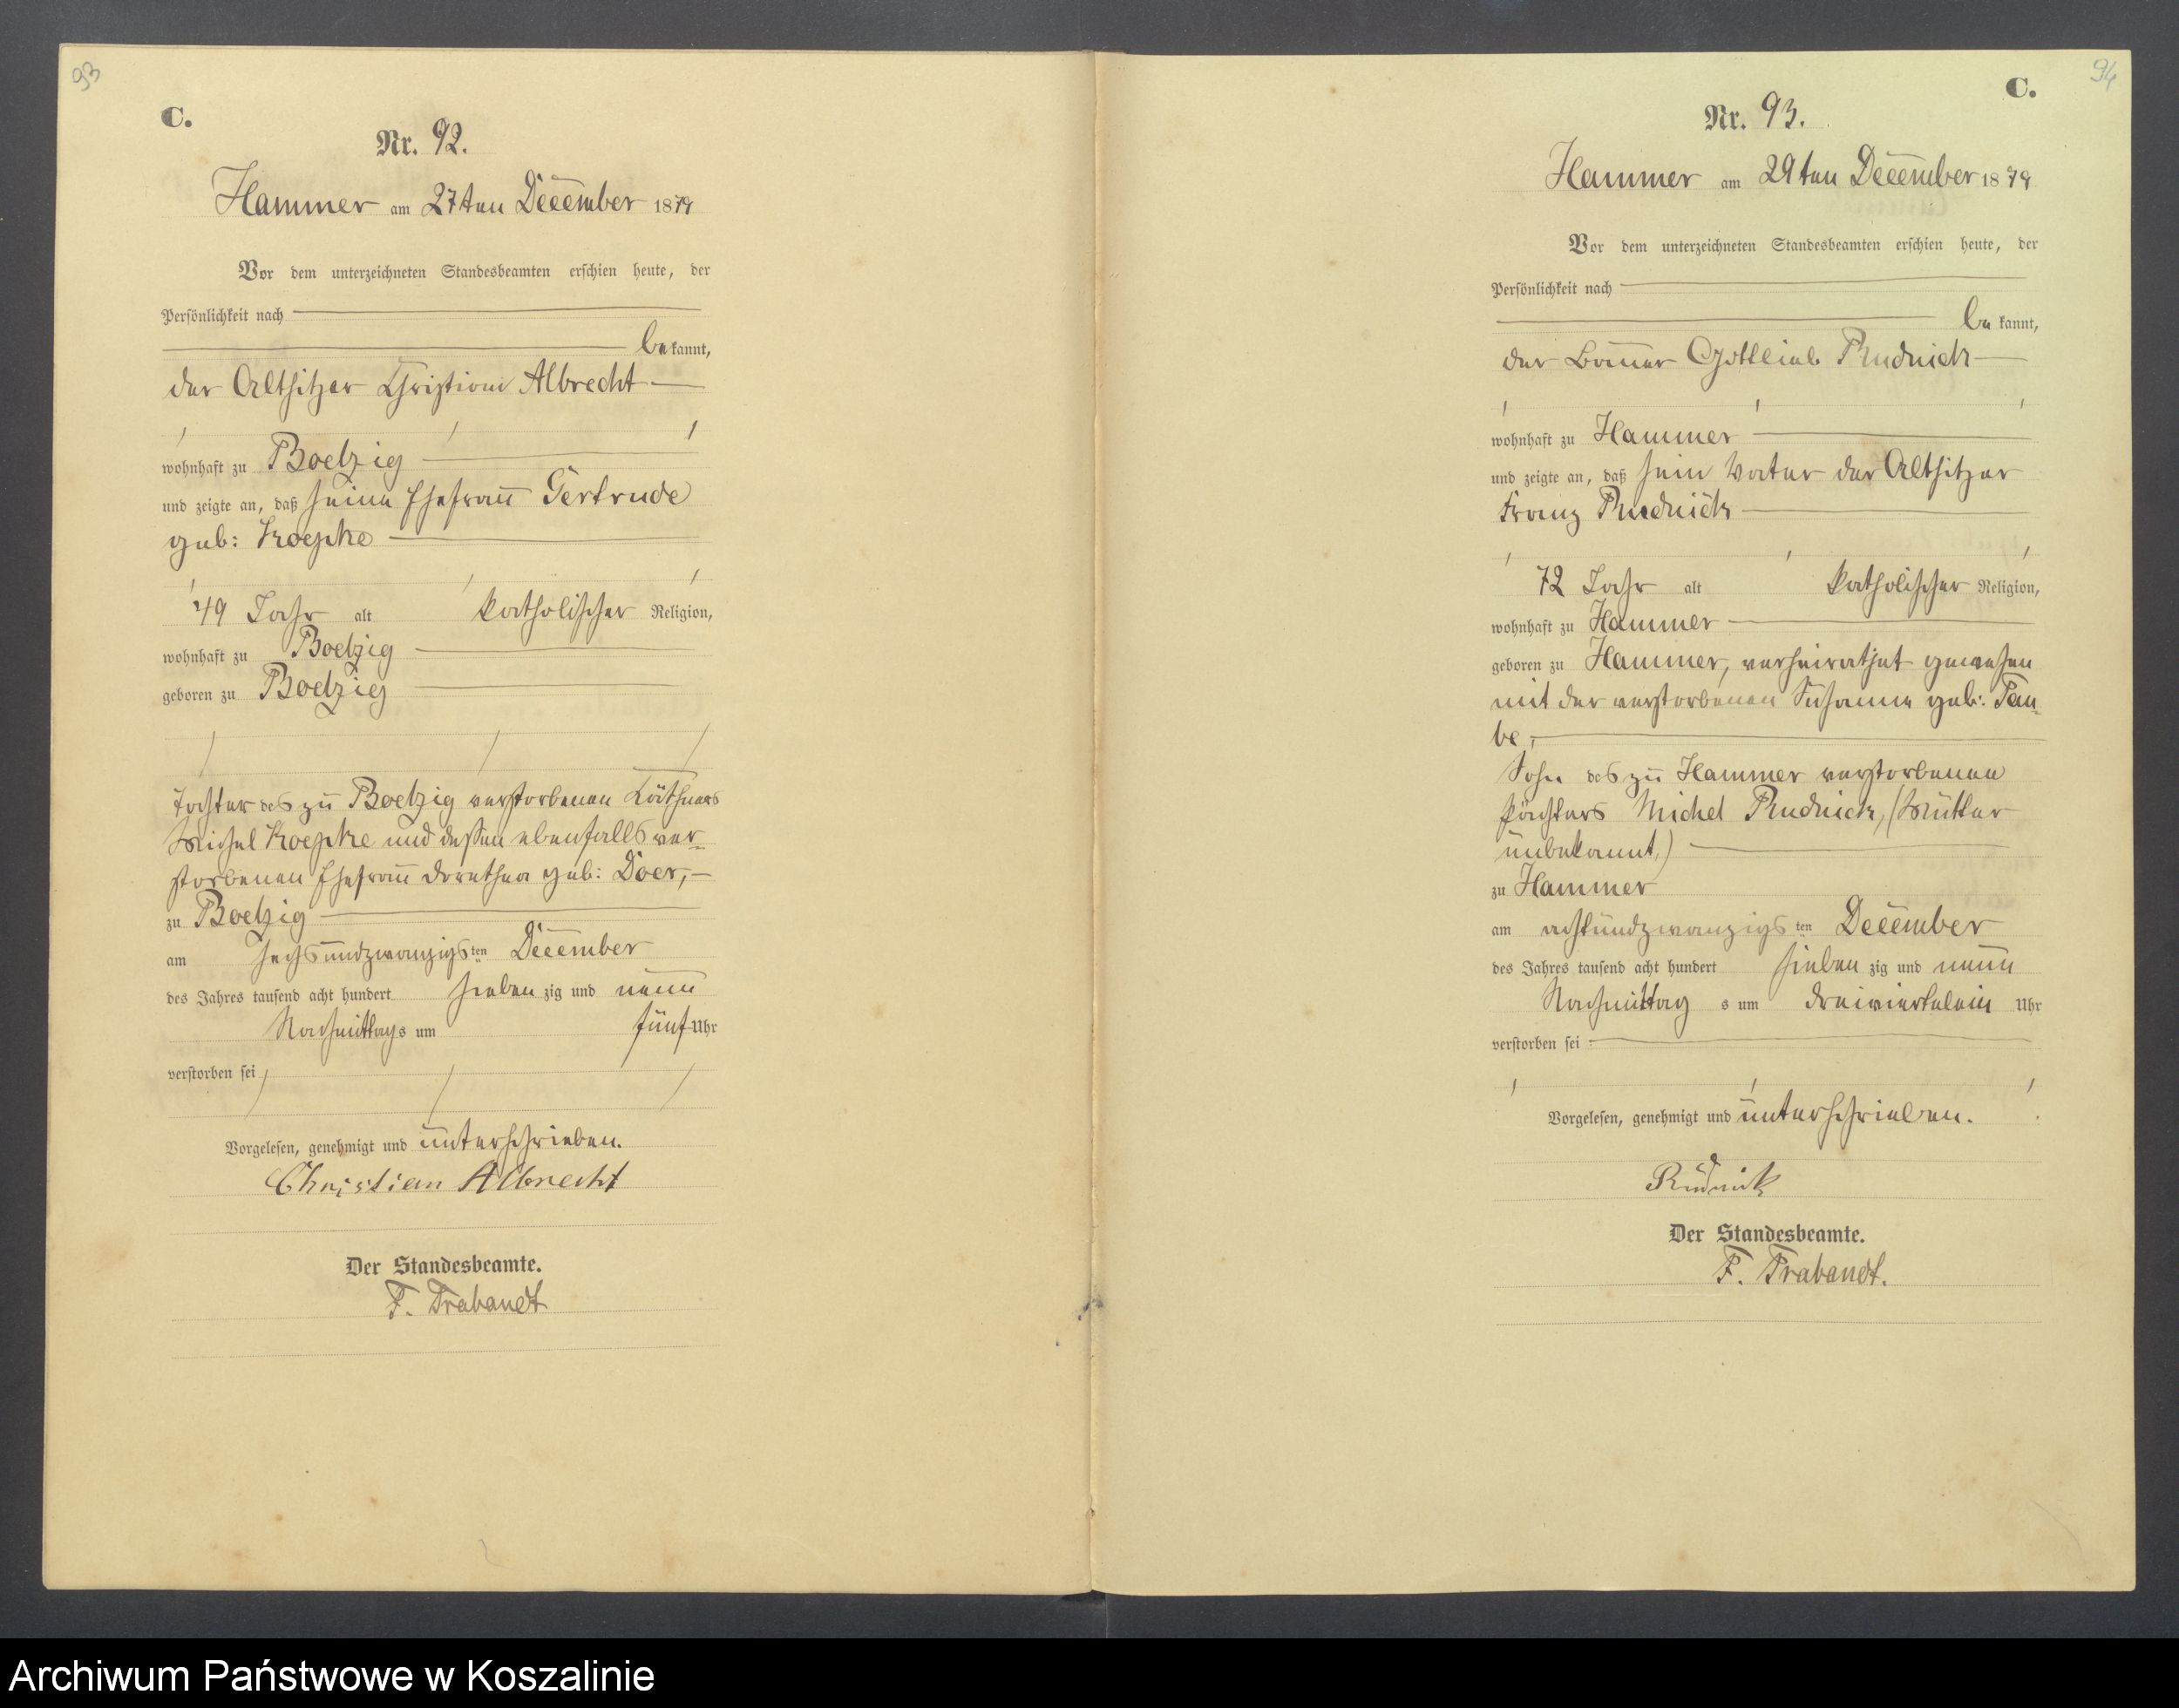 93
C.
Nr. 92.
Hammer am 27ten December 1879
Vor dem unterzeichneten Standesbeamten erschien heute, der
Persönlichkeit nach
bekannt,
der Altsitzer Christian Albrecht
wohnhaft zu Boetzig
und zeigte an, daß seine Ehefrau Gertrude
geb: Koepke
49 Jahr alt katholischer Religion,
wohnhaft zu Boetzig
geboren zu Boetzig
Tochter des zu Boetzig verstorbenen Käthners
Michel Koepke und dessen ebenfalls ver-
storbenen Ehefrau Dorethea geb: Doer,
zu Boetzig
am sechsundzwanzigsten December
des Jahres tausend acht hundert siebenzig und neun
Nachmittags um fünf Uhr
verstorben sei
Vorgelesen, genehmigt und unterschrieben.
Christian Albrecht
Der Standesbeamte.
F. Trabandt
94
C.
Nr. 93.
Hammer am 29ten December 1879
Vor dem unterzeichneten Standesbeamten erschien heute, der
Persönlichkeit nach
bekannt,
der Bauer Gottlieb Rudnick
wohnhaft zu Hammer
und zeigte an, daß sein Vater der Altsitzer
Franz Rudnick
72 Jahr alt katholischer Religion,
wohnhaft zu Hammer
geboren zu Hammer, verheirathet gewesen
mit der verstorbenen Susanne geb: Tau-
be,
Sohn des zu Hammer verstorbenen
Pächters Michel Rudnick, (Mutter
unbekannt,)
zu Hammer
am achtundzwanzigsten December
des Jahres tausend acht hundert siebenzig und neun
Nachmittags um dreiviertelein Uhr
verstorben sei
Vorgelesen, genehmigt und unterschrieben.
Rudnik
Der Standesbeamte.
F. Trabandt.
Archiwum Państwowe w Koszalinie